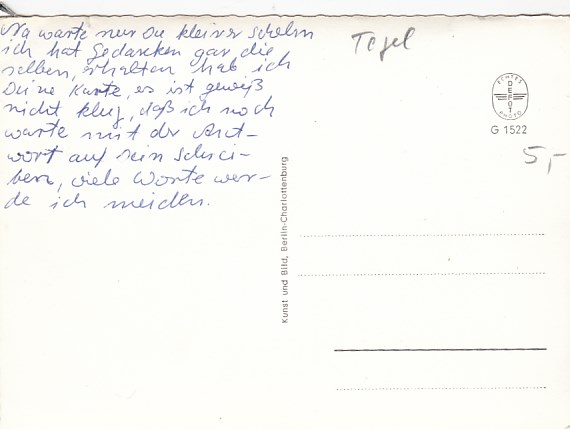 Na warte nur Du kleiner Schelm
ich hat Gedancken gar die
selben, erhalten hab ich
Deine Karte, es ist gewiß
nicht klug, daß ich noch
warte mit der Ant-
wort auf sein Schrei-
ben, viele Worte wer-
de ich meiden.
Tegel
ECHTES
DEFOT
PHOTO
G 1522
5,-
Kunst und Bild, Berlin-Charlottenburg